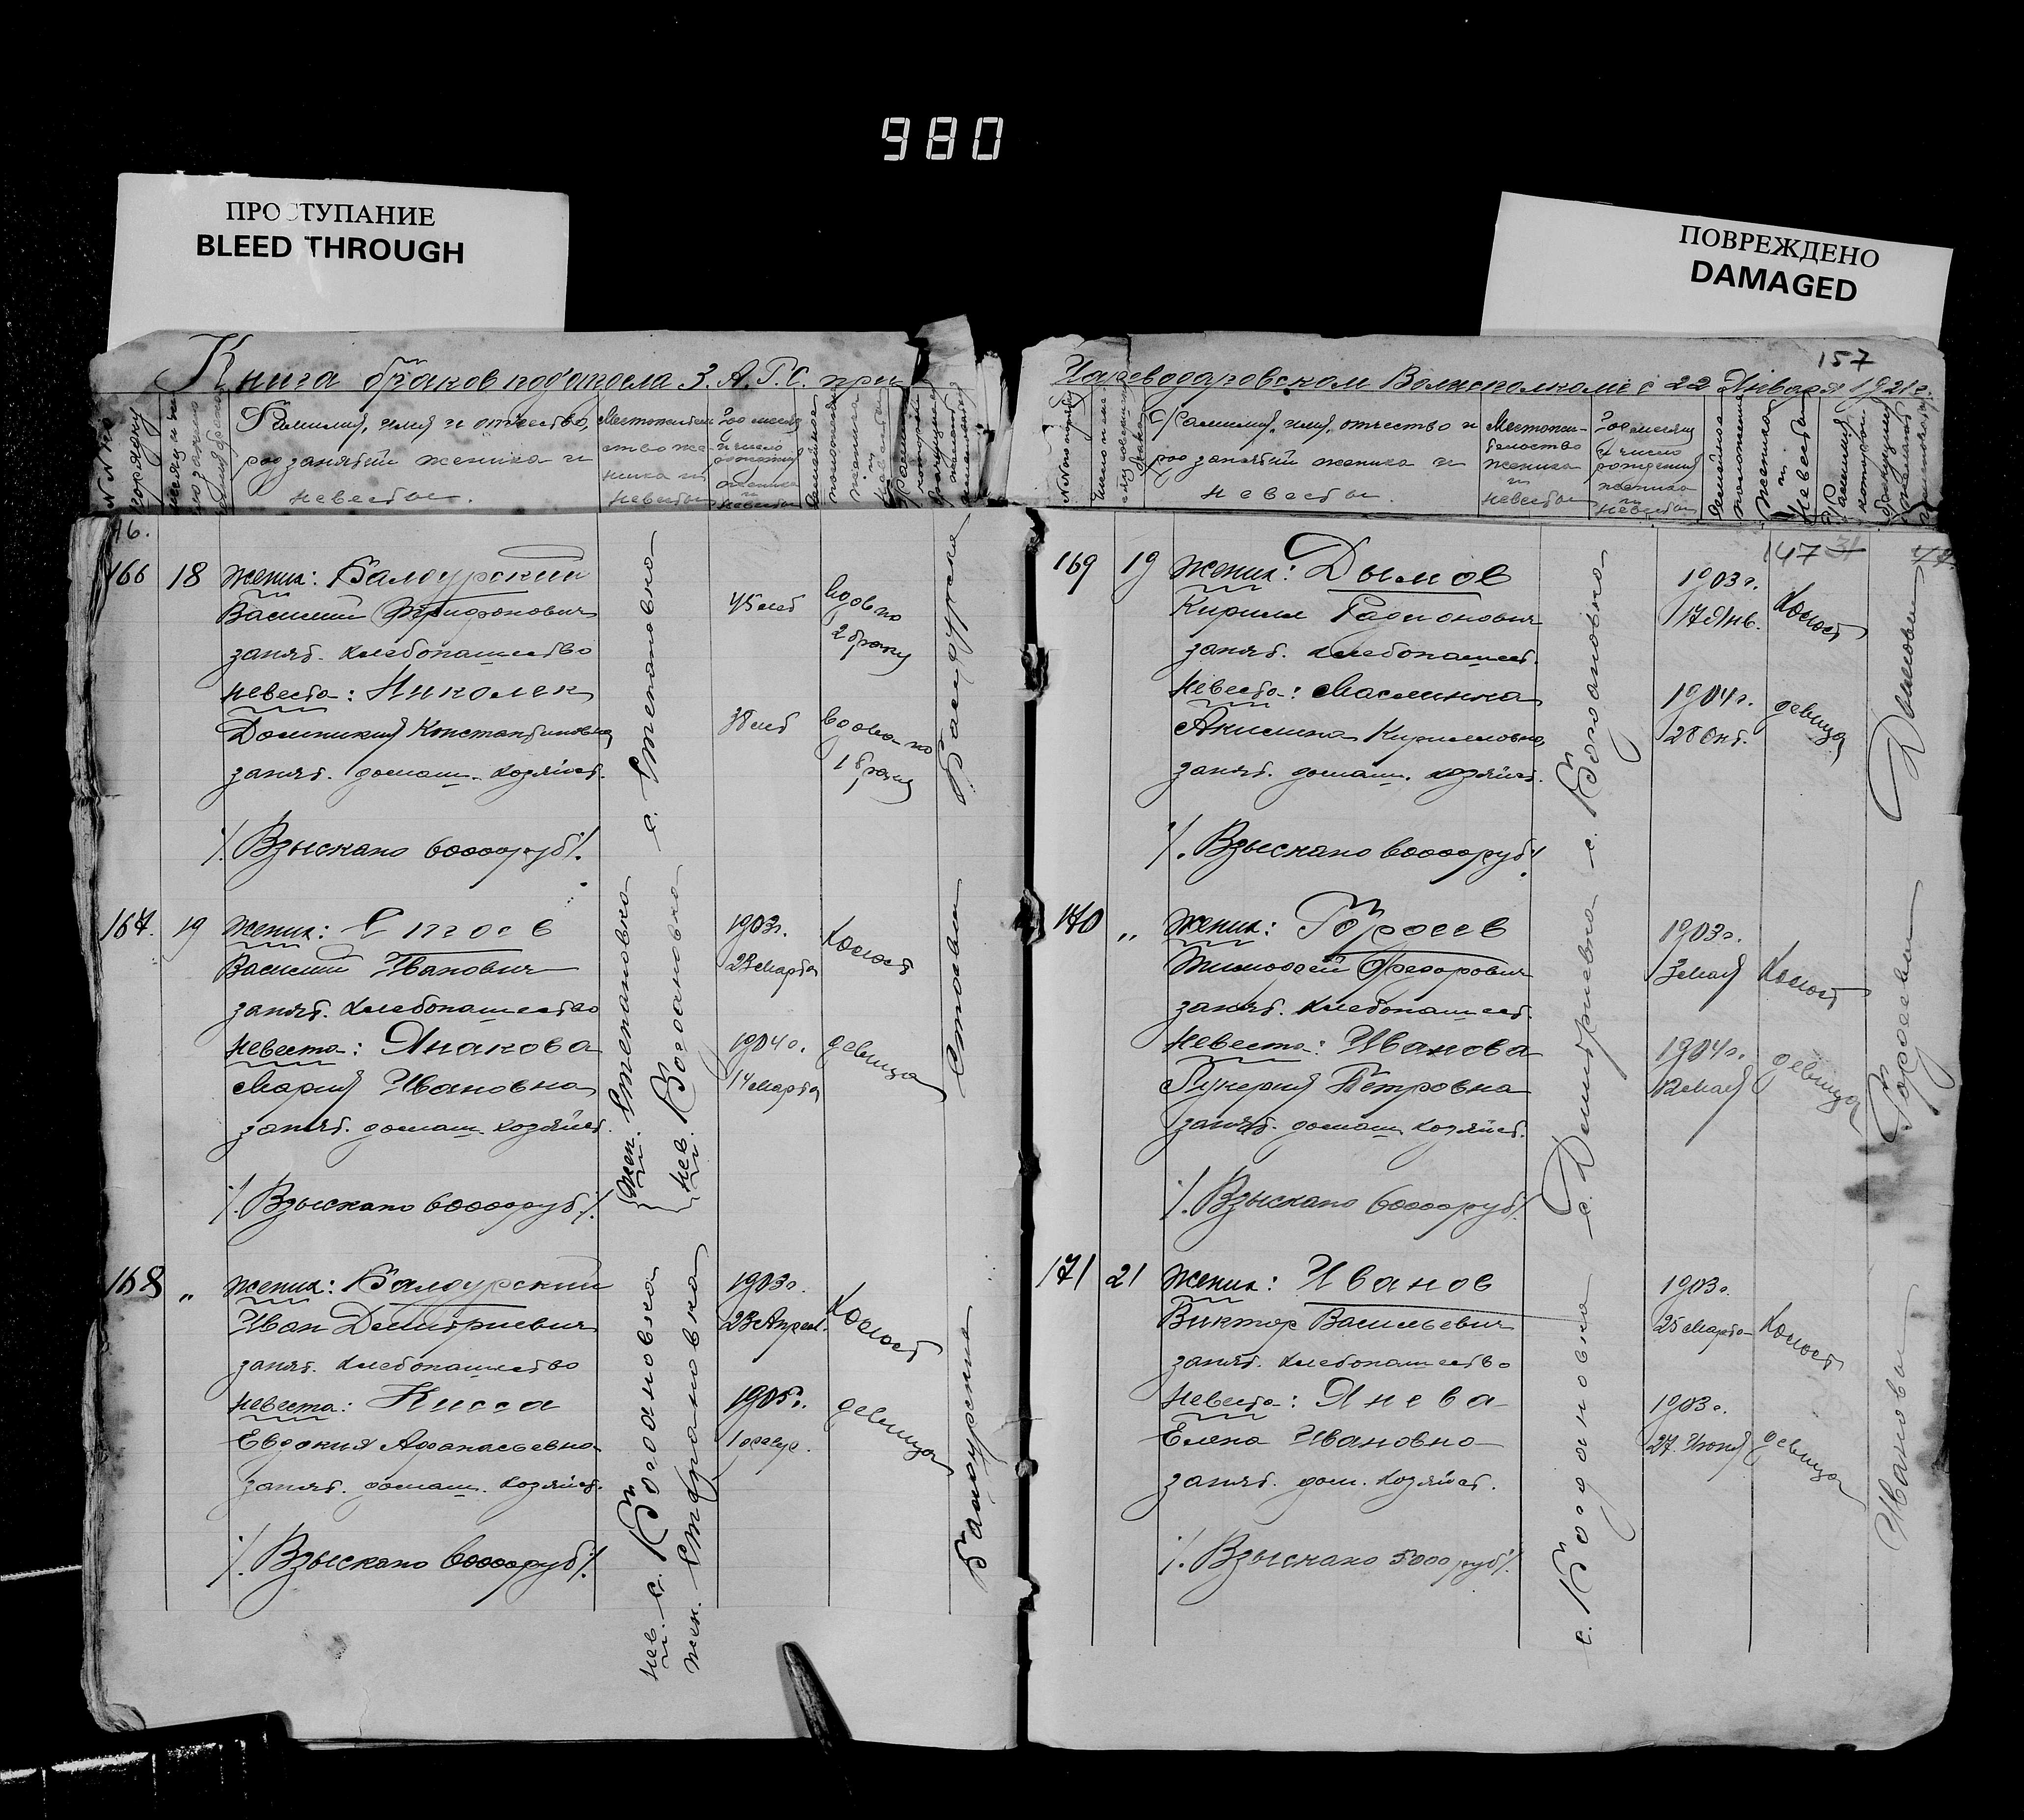 980
ПРОСТУПАНИЕ
BLEED THROUGH
ПОВРЕЖДЕНО
DAMAGED
Книга браков подотдела З.А.Г.С. при
№№ по порядку
Фамилия, имя и отчество,
род занятий жениха и
невесты.
Местожительство жениха и невесты
Год месяц и число рождения жениха и невесты
16.
166
18
жених: Балдурский
Василий Трифонович
занят. хлебопашество
невеста: Николек
Домникия Константиновна
занят. домаш. хозяйст.
/. Взыскано 60000 руб /.
с. Степановка
45 лет
38 лет
вдов по
2 браку
вдова по
1 браку
Балдурские
167.
19
жених: Стоев
Василий Иванович
занят. хлебопашество
невеста: Янакова
Мария Ивановна
занят. домаш. хозяйст.
/. Взыскано 60000 руб /.
жен. Степановка
нев. Богдановка
1903 г.
23 Марта
1904 г.
14 Марта
холост
девица
Стоевы
168
"
жених: Балдурский
Иван Дмитриевич
занят. хлебопашество
невеста: Кисса
Евдокия Афанасьевна
занят. домаш. хозяйст.
/. Взыскано 60000 руб /.
нев. с. Богдановка
жен. Степановка
1903 г.
23 Апрел.
1905 г.
холост
девица
Балдурские
157
Цареводаровском Волисполкоме с 22 Января 1921 г.
Фамилия, имя, отчество и
род занятий жениха и
невесты.
Местожительство жениха и невесты
Год месяц и число рождения жениха и невесты
147
169
19
жених: Дымов
Кирилл Радионович
занят. хлебопашест.
невеста: Маслинка
Акилина Кирилловна
занят. домаш. хозяйст.
/. Взыскано 60000 руб /.
с. Богдановка
1903 г.
17 Янв.
1904 г.
28 Окт.
холост
девица
Дымовы
170
"
жених: Гордеев
Тимофей Федорович
занят. хлебопашест.
невеста: Иванова
Лукерия Петровна
занят. домаш. хозяйст.
/. Взыскано 60000 руб /.
с. Дмитриевка
1903 г.
3 Мая
1904 г.
12 Мая
холост
девица
Гордеевы
171
21
жених: Иванов
Виктор Васильевич
занят. хлебопашество
невеста: Янева
Елена Ивановна
занят. дом. хозяйст.
/. Взыскано 5000 руб /.
с. Богдановка
1903 г.
25 Марта
1903 г.
27 Июня
холост
девица
Ивановы